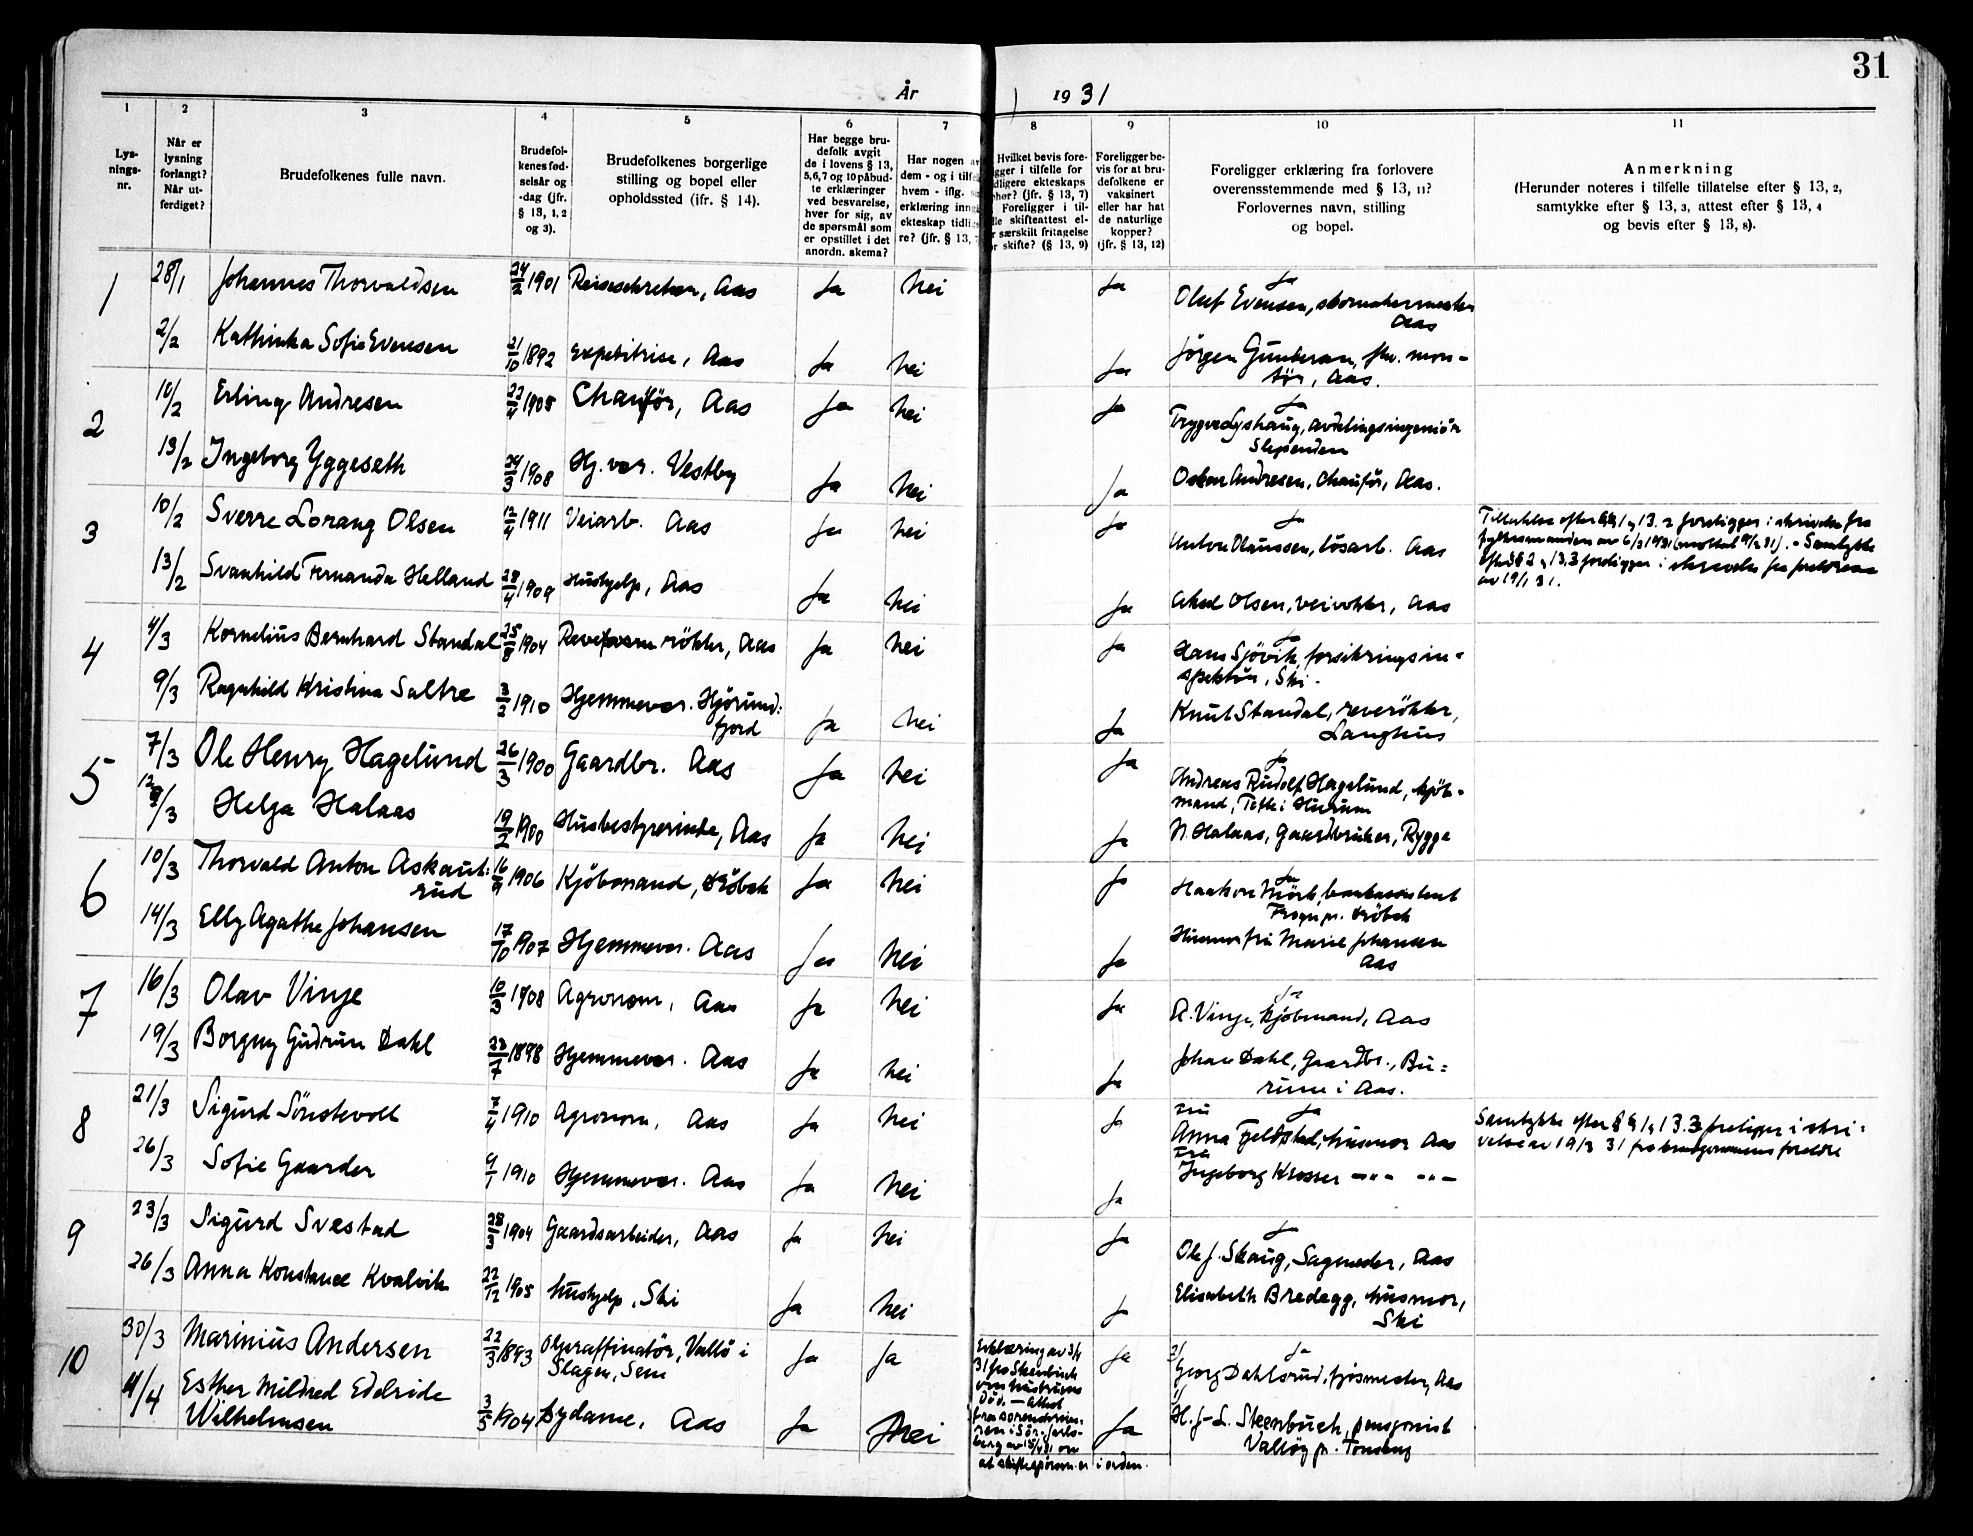 31
År 1931
1 2 3 4 5 6 7 8 9 10 11
Lys-
nings-
nr.
Når er
lysning
forlangt?
Når ut-
ferdiget?
Brudefolkenes fulle navn.
Brudefol-
kenes fød-
selsår og
-dag (jfr.
§ 13, 1, 2
og 3).
Brudefolkenes borgerlige
stilling og bopel eller
opholdssted (ifr. § 14).
Har begge bru-
defolk avgit
de i lovens § 13,
5,6,7 og 10 påbud-
te erklæringer
ved besvarelse,
hver for sig, av
de spørsmål som
er opstillet i det
anordn. skema?
Har nogen av
dem - og i tilf
hvem - iflg.
erklæring inng
ekteskap tidlig
re? (jfr. § 13,
Hvilket bevis fore-
gger i tilfelle for
dligere ekteskaps
phør? (jfr. § 13, 7)
Foreligger i til-
lle skifteattest el-
r særskilt fritagelse
r skifte? (§ 13, 9)
Foreligger be-
vis for at bru-
defolkene er
vaksinert
eller har hat
de naturlige
kopper?
(jfr. § 13, 12)
Foreligger erklæring fra forlovere
overensstemmende med § 13, 11?
Forlovernes navn, stilling
og bopel.
Anmerkning
(Herunder noteres i tilfelle tillatelse efter § 13, 2,
samtykke efter § 13, 3, attest efter § 13, 4
og bevis efter § 13, 8).
1 28/1 Johannes Thorvaldsen 24/2 1901 Reisesekretær, Aas Ja Nei Ja Ja
Oluf Evensen, skomakermester
Aas
2/2 Kathinka Sofie Evensen 21/10 1892 Expeditrise, Aas Ja Nei Ja Jörgen Gundersen, mon-
tör, Aas.
2 10/2 Erling Andresen 22/4 1905 Chauför, Aas Ja Nei Ja Ja
Trygve Lyshaug, avdelingsingeniör
Slependen
13/2 Ingeborg Yggeseth 24/3 1908 Hj.vær. Vestby Ja Nei Ja Oskar Andresen, chauför, Aas.
3 10/2 Sverre Lorang Olsen 12/4 1911 Veiarb. Aas Ja Nei Ja Ja
Anton Claussen, lösarb. Aas
Tillatelse efter §§ 1 og 13.2 foreligger i skrivelse fra
fylkesmanden av 6/2 1931 (mottat 9/2 31). - Samtykke
efter §§ 2 og 13.3 foreligger i skrivelse fra foreldrene
av 19/1 31.
13/2 Svanhild Fernanda Helland 28/4 1909 Hushjelp, Aas Ja Nei Ja Aksel Olsen, veivokter, Aas
4 4/3 Kornelius Bernhard Standal 25/8 1904 Revefarm rökter, Aas Ja Nei Ja Ja
Hans Sjövik, forsikringsin-
spektör, Ski.
9/3 Ragnhild Kristina Saltre 3/2 1910 Hjemmevær. Hjörund-
fjord Ja Nei Ja Knut Standal, reverökter,
Langhus
5 7/3 Ole Henry Hagelund 26/3 1900 Gaardbr. Aas Ja Nei Ja Ja
Andreas Rudolf Hagelund, kjöb-
mand, Tofte i Hurum
12/3 Helga Halaas 19/2 1900 Husbestyrerinde, Aas Ja Nei Ja N. Halaas, gaardbruker, Rygge
6 10/3 Thorvald Anton Askaut-
rud 16/9 1906 Kjöbmand, Dröbak Ja Nei Ja Ja
Haakon Mörk, bankassistent
Frogn pr. Dröbak
14/3 Elly Agathe Johansen 17/10 1907 Hjemmevær. Aas Ja Nei Ja Husmor fru Marie Johansen
Aas
7 16/3 Olav Vinje 10/3 1908 Agronom, Aas Ja Nei Ja Ja
A. Vinje, kjöbmand, Aas
19/3 Borgny Gudrun Dahl 23/7 1898 Hjemmevær. Aas Ja Nei Ja Johan Dahl, Gaardbr., Bu-
rum i Aas.
8 21/3 Sigurd Sönstevoll 7/4 1910 Agronom, Aas Ja Nei Ja Ja
Fru
Anna Fjeldstad, husmor Aas
Samtykke efter §§ 2 og 13.3 foreligger i skri-
velse av 19/3 31 fra brudgommens foreldre
26/3 Sofie Gaarder 9/1 1910 Hjemmevær. Aas Ja Nei Ja Fru
Ingeborg Klosser -"- -"-
9 23/3 Sigurd Svestad 28/3 1904 Gaardsarbeider, Aas Ja Nei Ja Ja
Ole J. Skaug, Sagmester, Aas
26/3 Anna Konstance Kvalvik 22/12 1905 Hushjelp, Ski Ja Nei Ja Elisabeth Bredegg, husmor,
Ski
10 30/3 Marinius Andersen 22/3 1893 Oljeraffinatör, Vallö i
Slagen, Sem Ja Ja
Erklæring av 3/4
31 fra Steenbuch
om hustruens
död. - Attest
fra sorenskrive-
ren i Sör-Jarls-
berg av 15/4 31 om
at skiftespörsm. er i orden.
Ja Ja
Georg Dahlsrud, fjösmester, Aas
11/4 Esther Mildred Edelride
Wilhelmsen 3/5 1904 Sydame, Aas Ja Nei Ja H. J. L. Steenbuch, pensjonist
Vallöy pr. Tönsberg